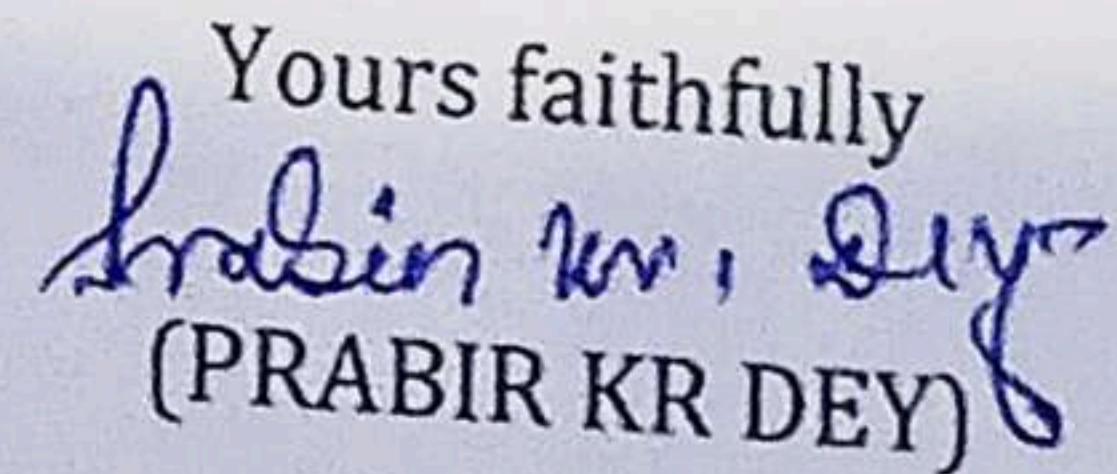 Yours faithfully
Prabir Kr. Dey
(PRABIR KR DEY)